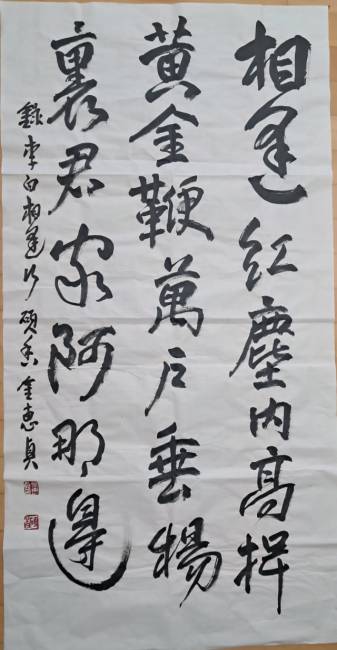 相逢紅塵內高揖
黃金鞭萬戶垂楊
裏君家阿那邊
錄李白相逢行 碩香 金惠貞